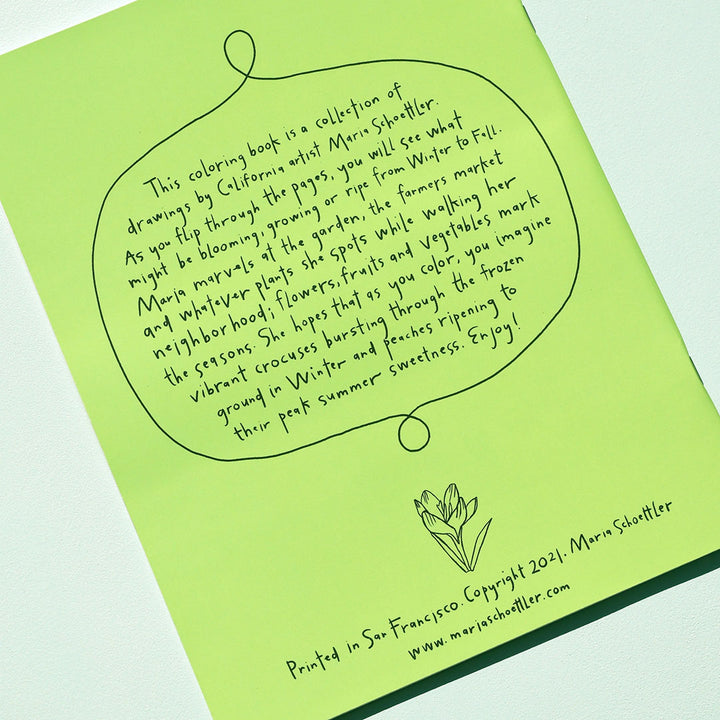 This coloring book is a collection of
drawings by California artist Maria Schoettler.
As you flip through the pages, you will see what
might be blooming, growing or ripe from Winter to Fall.
Maria marvels at the garden, the farmers market
and whatever plants she spots while walking her
neighborhood; flowers, fruits and vegetables mark
the seasons. She hopes that as you color, you imagine
vibrant crocuses bursting through the frozen
ground in Winter and peaches ripening to
their peak summer sweetness. Enjoy!
Printed in San Francisco. Copyright 2021. Maria Schoettler
www.mariaschoettler.com